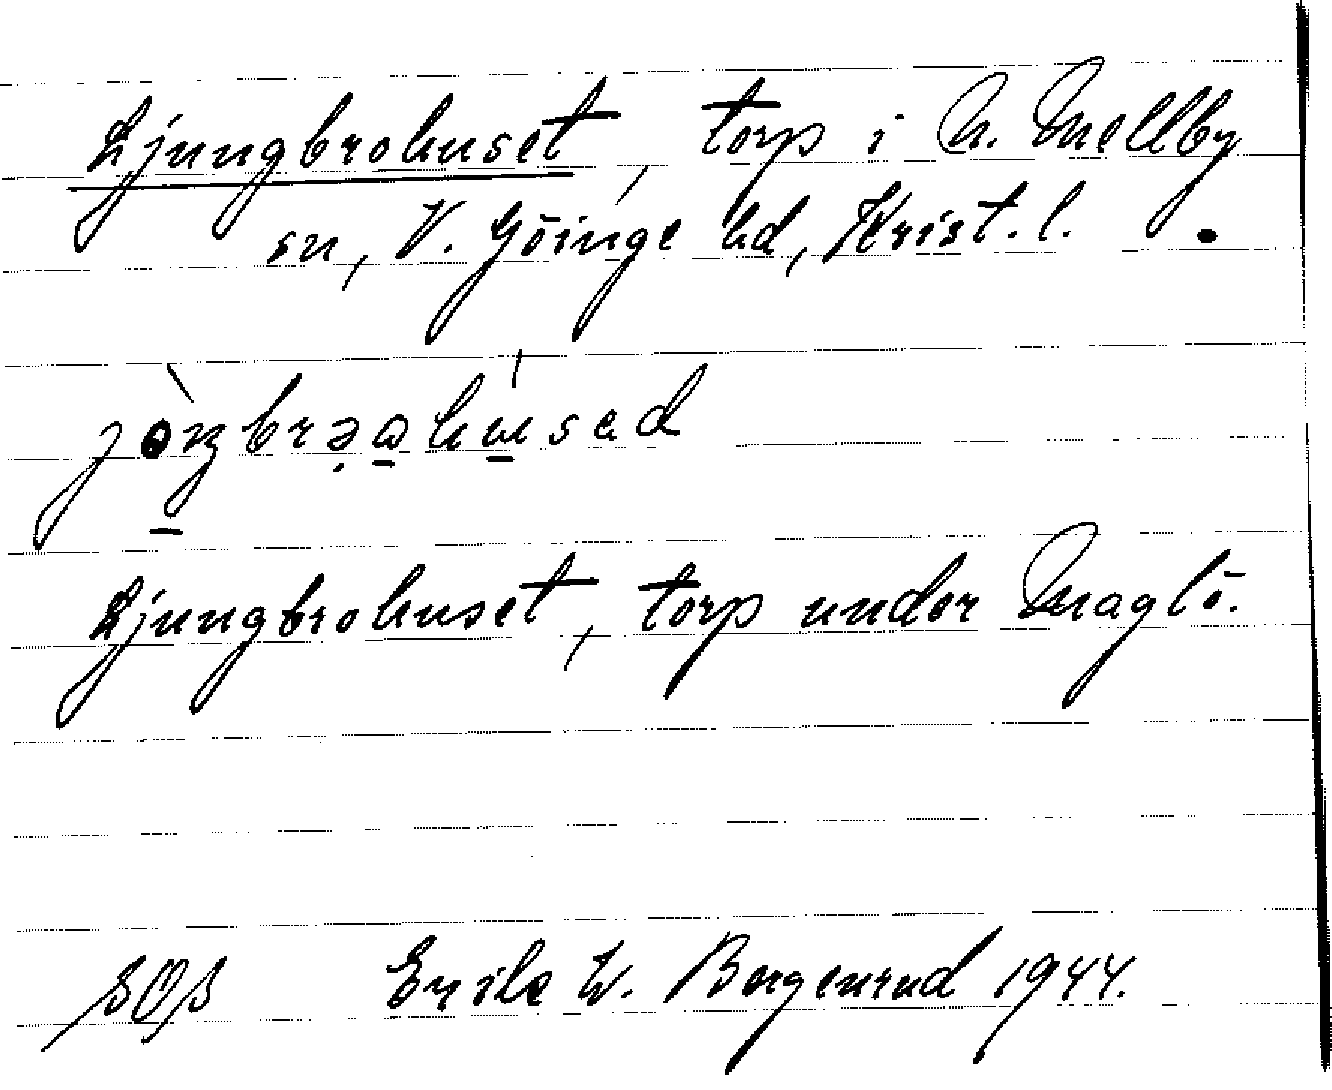 Ljungbrohuset, torp i N. Mellby
sn, V. Göinge hd, Krist. l.
Ljungbrohuset, torp under Maglö.
SOS W. Bergenrud 1944.